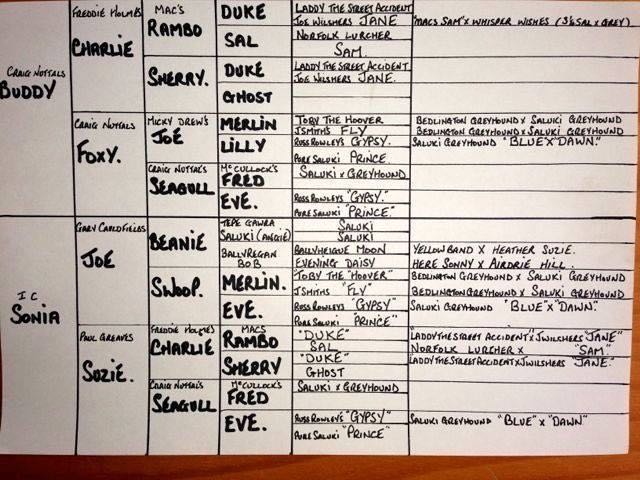 CRAIG NUTTALS
BUDDY
FREDDIE HOLMES
CHARLIE
MAC'S
RAMBO
DUKE
LADDY THE STREET ACCIDENT
JOE WILSHERS JANE
"MACS SAM" X WHISPER WISHES (3/8 SAL X GREY)
SAL
NORFOLK LURCHER
SAM.
SHERRY.
DUKE
LADDY THE STREET ACCIDENT
JOE WILSHERS JANE.
GHOST
CRAIG NUTTALS
FOXY.
MICKY DREW'S
JOE
MERLIN
TOBY THE HOOVER
BEDLINGTON GREYHOUND X SALUKI GREYHOUND
JSMITHS FLY
BEDLINGTON GREYHOUND X SALUKI GREYHOUND
LILLY
ROSS ROWLEYS GYPSY.
SALUKI GREYHOUND "BLUE" X "DAWN."
PURE SALUKI PRINCE.
CRAIG NUTTAL'S
SEAGULL
McCULLOCK'S
FRED
SALUKI X GREYHOUND
EVE.
ROSS ROWLEYS "GYPSY."
PURE SALUKI "PRINCE."
I C
SONIA
GARY CAULDFIELDS
JOE
BEANIE
TEPE GAWRA
SALUKI (ANGIE)
SALUKI
SALUKI
BALLYREGAN
BOB
BALLYHEIGUE MOON
YELLOW BAND X HEATHER SUZIE.
EVENING DAISY
HERE SONNY X AIRDRIE HILL.
SWOOP.
MERLIN.
"TOBY THE "HOOVER"
BEDLINGTON GREYHOUND X SALUKI GREYHOUND
JSMITHS "FLY"
BEDLINGTON GREYHOUND X SALUKI GREYHOUND
EVE.
ROSS ROWLEYS "GYPSY"
SALUKI GREYHOUND "BLUE" X "DAWN".
PURE SALUKI "PRINCE"
PAUL GREAVES
SUZIE.
FREDDIE HOLMES
CHARLIE
MACS
RAMBO
"DUKE"
"LADDY THE STREET ACCIDENT" X JWILSHERS "JANE"
SAL
NORFOLK LURCHER X "SAM."
SHERRY
"DUKE"
"LADDY THE STREET ACCIDENT X JWILSHERS "JANE."
GHOST
CRAIG NUTTAL'S
SEAGULL
McCULLOCK'S
FRED
SALUKI X GREYHOUND
EVE.
ROSS ROWLEYS "GYPSY"
SALUKI GREYHOUND "BLUE" X "DAWN"
PURE SALUKI "PRINCE"